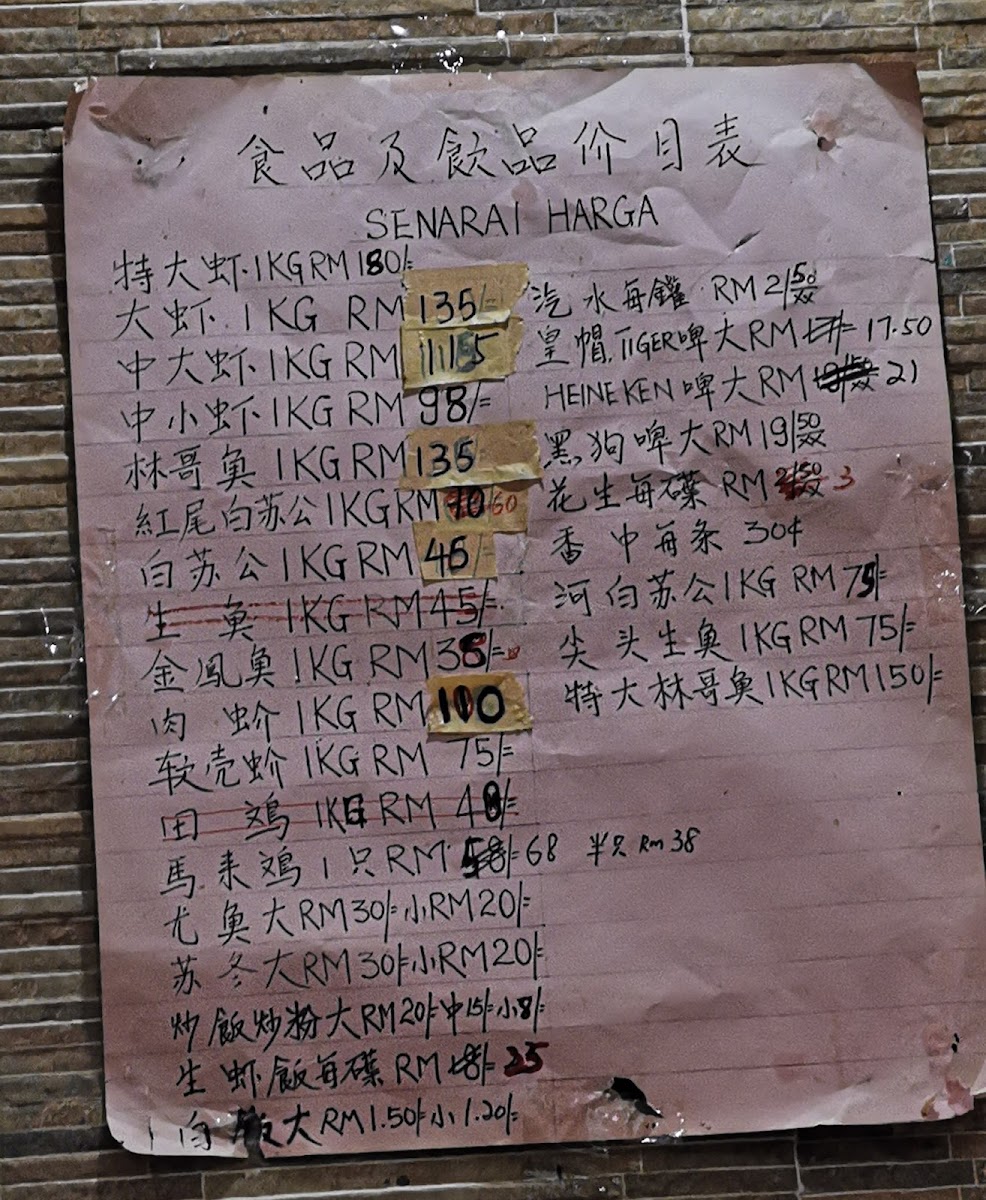 食品及飲品价目表
SENARAI HARGA
特大虾 1KG RM 180/=
大虾 1KG RM 135/=
中大虾 1KG RM 115
中小虾 1KG RM 98/=
林哥魚 1KG RM 135
紅尾白苏公 1KG RM 60
白苏公 1KG RM 46/=
生魚 1KG RM 45/=
金鳯魚 1KG RM 38/=
肉蚧 1KG RM 110
软壳蚧 1KG RM 75/=
田鸡 1KG RM 48/=
馬来鸡 1只 RM 58/= 68 半只 Rm 38
尤魚大 RM 30/= 小 RM 20/=
苏冬大 RM 30/= 小 RM 20/=
炒飯炒粉大 RM 20/= 中 15/= 小 8/=
生虾飯每碟 RM 25
白飯大 RM 1.50/= 小 1.20/=
汽水每鑵 RM 2/50
皇帽 TIGER 啤大 RM 17.50
HEINEKEN 啤大 RM 21
黑狗啤大 RM 19/50
花生每碟 RM 3
香巾每条 30¢
河白苏公 1KG RM 75/=
尖头生魚 1KG RM 75/=
特大林哥魚 1KG RM 150/=